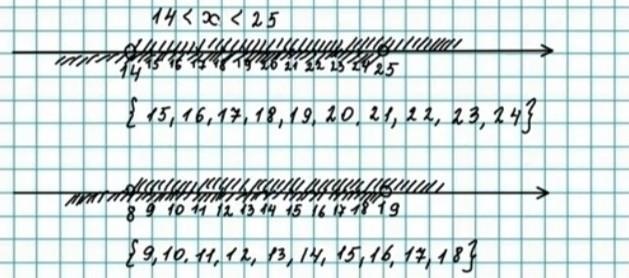 14 < x < 25
14 15 16 17 18 19 20 21 22 23 24 25
{15, 16, 17, 18, 19, 20, 21, 22, 23, 24}
8 9 10 11 12 13 14 15 16 17 18 19
{9, 10. 11, 12, 13, 14, 15, 16, 17, 18}